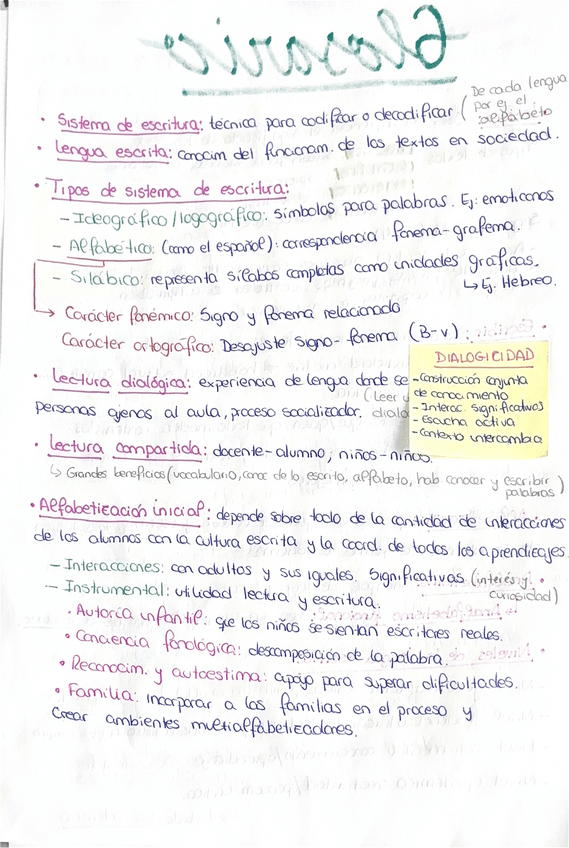 Glosario
• Sistema de escritura: técnica para codificar o decodificar (De cada lengua
por ej. el
alfabeto
• Lengua escrita: conocim del funcionam. de los textos en sociedad.
• Tipos de sistema de escritura:
- Ideográfico/logográfico: símbolos para palabras. Ej: emoticonos
- Alfabético: (como el español): correspondencia fonema-grafema.
- Silábico: representa sílabas completas como unidades gráficas.
↳ Ej. Hebreo.
→ Carácter fonémico: Signo y fonema relacionado
Carácter ortográfico: Desajuste signo-fonema (B-v)
• Lectura dialógica: experiencia de lengua donde se
(Leer y
personas ajenas al aula, proceso socializador. dialo
DIALOGICIDAD
- Construcción conjunta
de conocimiento
- Interac. significativas
- Escucha activa
- Contexto intercambia
• Lectura compartida: docente-alumno; niños-niños.
↳ Grandes beneficios (vocabulario, conoc de lo escrito, alfabeto, hab conocer y escribir
palabras)
• Alfabetización inicial: depende sobre todo de la cantidad de interacciones
de los alumnos con la cultura escrita y la coord. de todos los aprendizajes.
- Interacciones: con adultos y sus iguales. Significativas (interés y
curiosidad)
- Instrumental: utilidad lectura y escritura.
• Autoría infantil: que los niños se sientan escritores reales.
• Conciencia fonológica: descomposición de la palabra.
• Reconocim. y autoestima: apoyo para superar dificultades.
• Familia: Incorporar a las familias en el proceso y
crear ambientes multialfabetizadores.